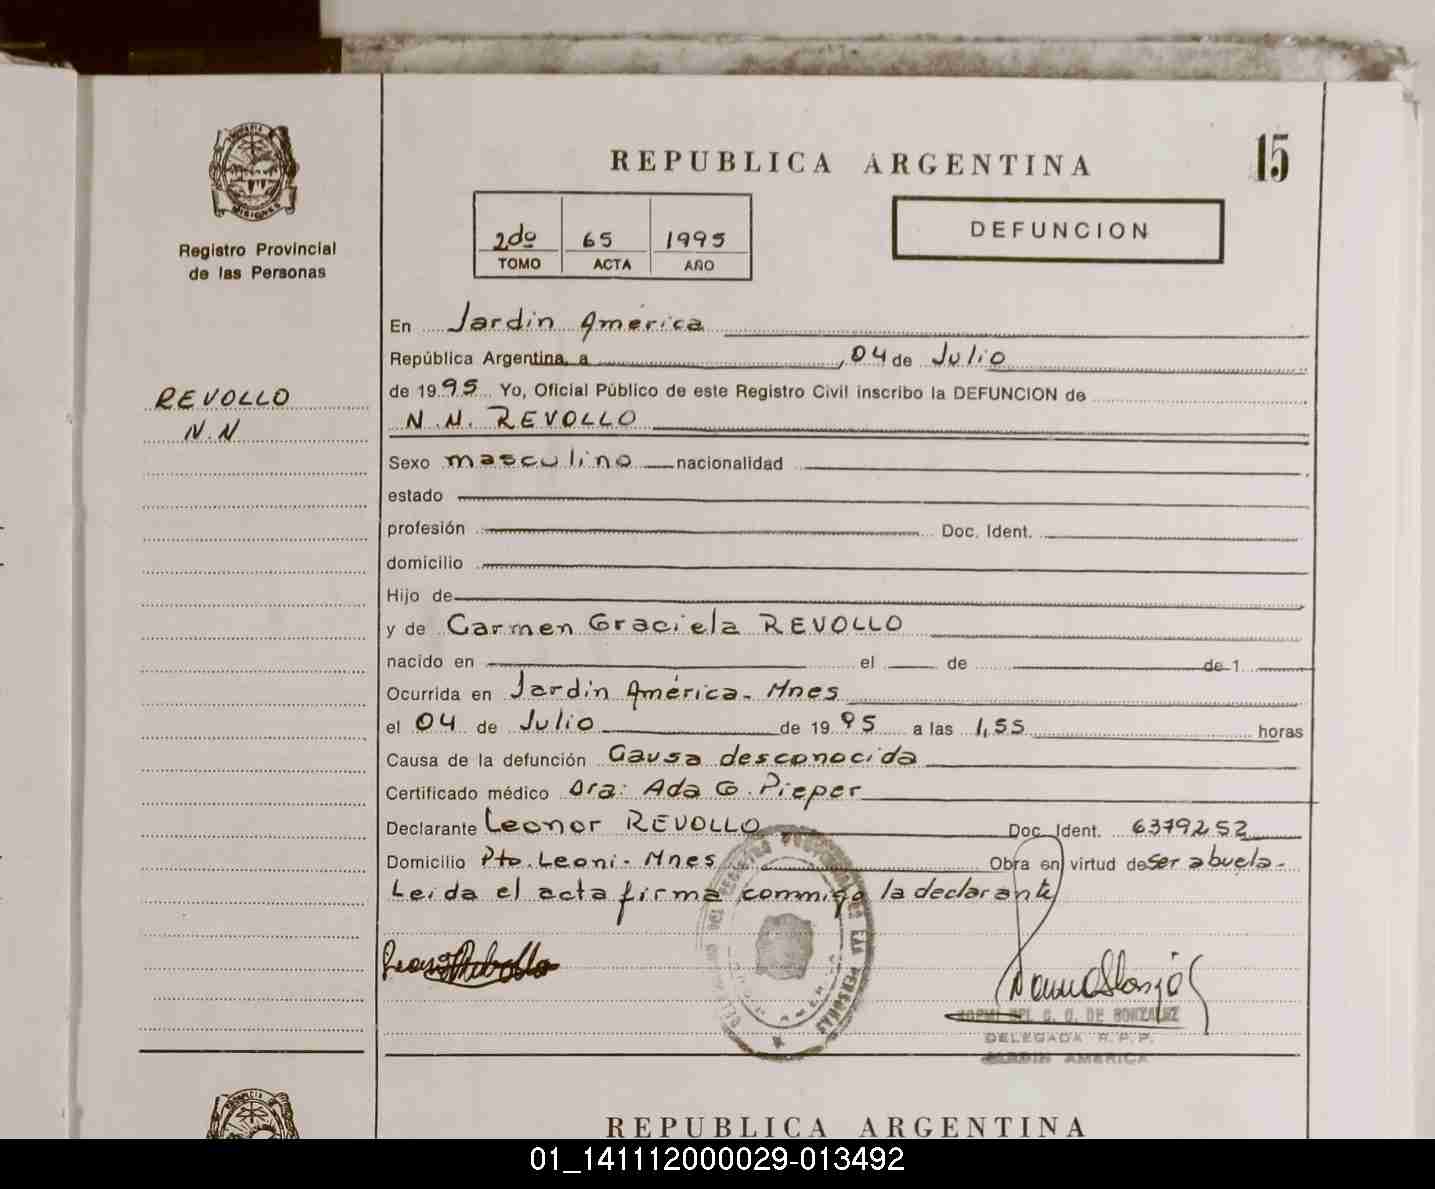 REPUBLICA ARGENTINA
15
PROVINCIA DE MISIONES
Registro Provincial
de las Personas
2do 65 1995
TOMO ACTA AÑO
DEFUNCION
REVOLLO
N.N
En Jardin América
República Argentina, a , 04 de Julio
de 1995 Yo, Oficial Público de este Registro Civil inscribo la DEFUNCION de
N.N. REVOLLO
Sexo masculino nacionalidad
estado
profesión Doc. Ident.
domicilio
Hijo de
y de Carmen Graciela REVOLLO
nacido en el de de 1
Ocurrida en Jardin América - Mnes
el 04 de Julio de 1995 a las 1,55 horas
Causa de la defunción Causa desconocida
Certificado médico Dra: Ada G. Pieper
Declarante Leonor REVOLLO Doc. Ident. 6379252
Domicilio Pto. Leoni - Mnes Obra en virtud de ser abuela.-
Leida el acta firma commigo la declarante
DE GONZALEZ
DELEGADA R.P.P.
JARDIN AMERICA
REPUBLICA ARGENTINA
01_141112000029-013492